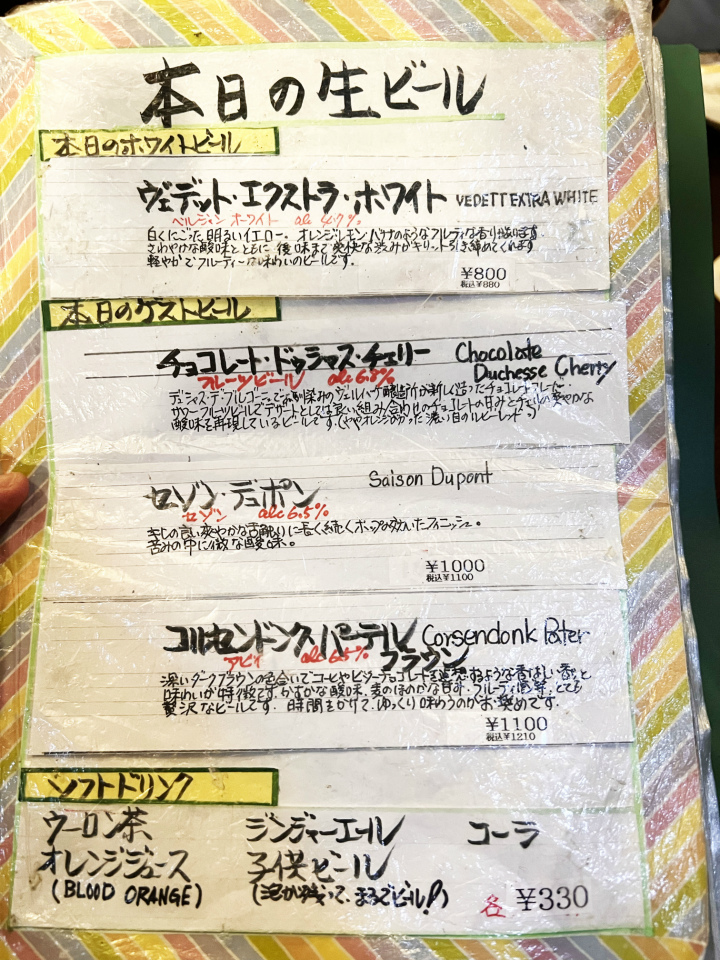 本日の生ビール
本日のホワイトビール
ヴェデット・エクストラ・ホワイト VEDETT EXTRA WHITE
ベルジャン ホワイト alc 4.7%
白くにごった明るいイエロー。オレンジ、レモン、バナナのようなフルーティな香り
さわやかな酸味とともに、後味まで爽快な渋みがキリッと引き締めてくれます
軽やかでフルーティーな味わいのビールです。
¥800
税込¥880
本日のゲストビール
チョコレート・ドゥシャス・チェリー Chocolate
Duchesse Cherry
フルーツビール alc 6.8%
醸造所が新しく造ったチョコレート
サワーフルーツビールでデザートとしても良い組み合わせのチョコレートの甘みとチェリーの爽やかな
酸味を再現しているビールです。(ややオレンジがかった濃い目のルビーレッド。)
セゾン・デュポン Saison Dupont
セゾン alc 6.5%
キレの良い爽やかな苦味の後に長く続くホップの効いたフィニッシュ。
苦みの中に微な酸味。
¥1000
税込¥1100
コルセンドンク・パーテル Corsendonk Pater
ブラウン
アビィ alc 6.5%
深いダークブラウンの色合いでコーヒーやビターチョコレートを連想するような香ばしい香りと
味わいが特徴です。かすかな酸味、麦のほのかな甘み、フルーティな、とても
贅沢なビールです。時間をかけて、ゆっくり味わうのがお奨めです。
¥1100
税込¥1210
ソフトドリンク
ウーロン茶 ジンジャーエール コーラ
オレンジジュース 子供ビール
(BLOOD ORANGE) (泡が残って、まるでビール!) 各 ¥330